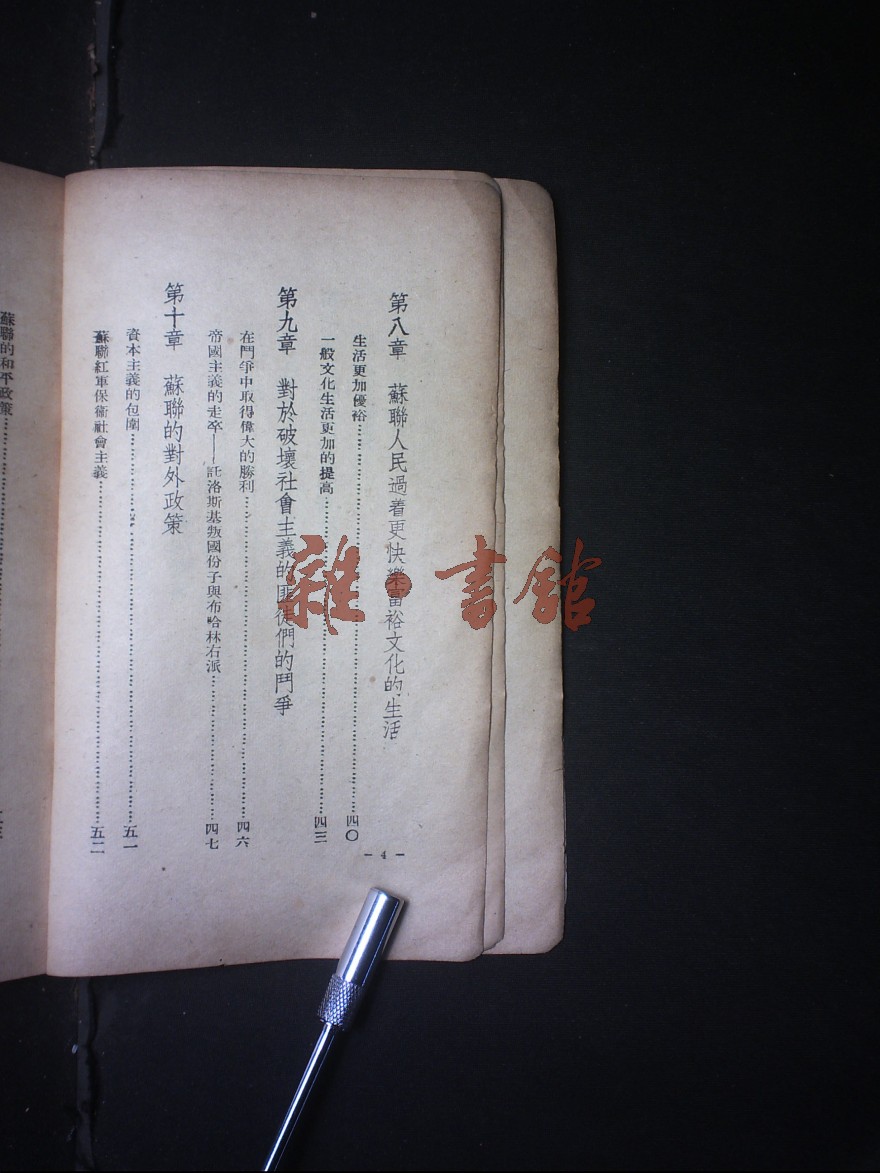 第八章　蘇聯人民過着更快樂富裕文化的生活
生活更加優裕…………四〇
一般文化生活更加的提高…………四三
第九章　對於破壞社會主義的匪徒們的鬥爭
在鬥爭中取得偉大的勝利…………四六
帝國主義的走卒——託洛斯基叛國份子與布哈林右派…………四七
第十章　蘇聯的對外政策
資本主義的包圍…………五一
蘇聯紅軍保衛社會主義…………五二
— 4 —
蘇聯的和平政策…………
雜·書館